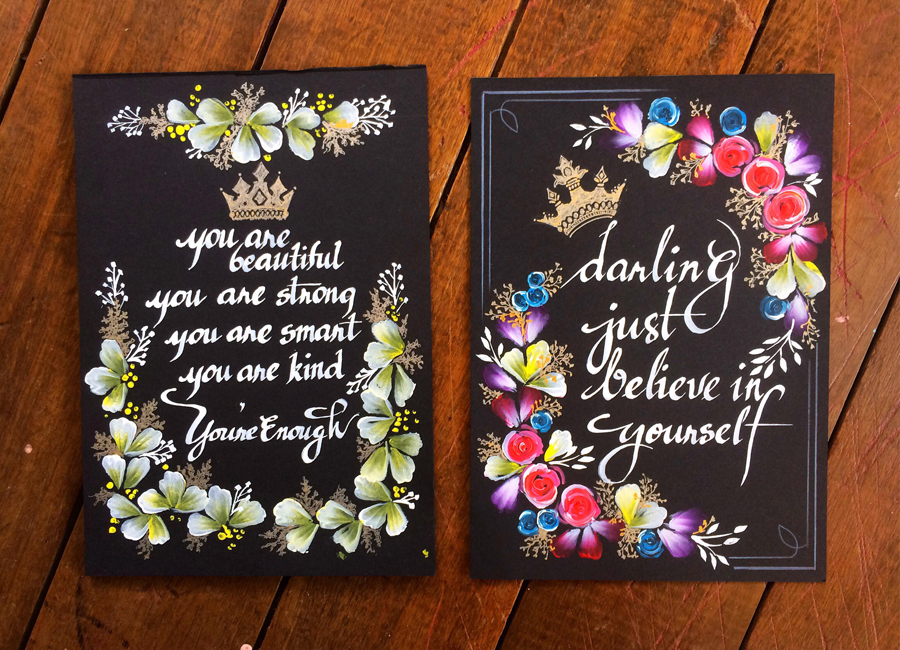 you are
beautiful
you are strong
you are smart
you are kind
You're Enough
darling
just
believe in
yourself